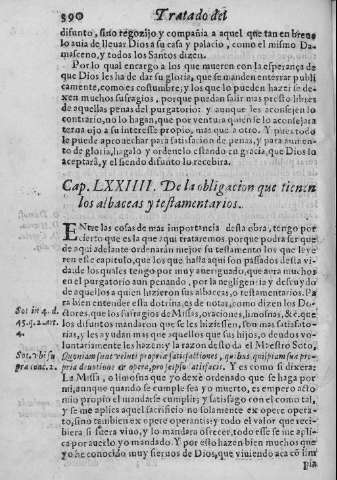 390 Tratado del
difunto, sino regozijo y compañia a aquel que tan en breue
lo auia de lleuar Dios a su casa y palacio, como el mismo Da-
masceno, y todos los Santos dizen.
Por lo qual encargo a los que mueren con la esperança de
que Dios les ha de dar su gloria, que se manden enterrar publi
camente, como es costumbre; y los que lo pueden hazer se de-
xen muchos sufragios, porque puedan salir mas presto libres
de aquellas penas del purgatorio: y aunque les aconsejen lo
contrario, no lo hagan, que por ventura quien se lo aconsejara
terna ojo a su interesse propio, mas que a otro. Y pues todo
le puede aprouechar para satisfacion de penas, y para aumen-
to de gloria, hagalo y ordenelo estando en gracia, que Dios lo
aceptarà, y el siendo difunto lo recebira.
Cap. LXXIIII. De la obligacion que tienen
los albaceas y testamentarios.
ENtre las cosas de mas importancia desta obra, tengo por
cierto que es la que aqui trataremos porque podra ser que
de aqui adelante ordenaràn mejor su testamento los que leye
ren este capitulo, que los que hasta aqui son passados desta vi
da: de los quales tengo por muy aueriguado, que aura muchos
en el purgatorio aun penando, por la negligencia y descuydo
de aquellos a quien hizieron sus albaceas, o testamentarios. Pa
ra bien entender esta dotrina, es de notar, como dizen los Do-
ctores. que los sufragios de Missas, oraciones, limosnas, &c. que
los difuntos mandaron que se les hiziessen, son mas satisfato-
rias, y les ayudan mas que aquellos que sus hijos, o deudos vo-
luntariamente les hazen: y la razon desto da el Maestro Soto,
Quoniam sunt veluti propriæ satisfactiones, quibus quispiam sua pro-
pria deuotione & opera, pro se ipso satisfacit. Y es como si dixera:
La Missa, o limosna que yo dexè ordenado que se haga por
mi, aunque quando se cumple sea yo muerto, es empero acto
mio propio el mandarse cumplir; y satisfago con el como tal,
y se me aplica aquel sacrificio no solamente ex opere opera-
to, sino tambien ex opere operantis: y todo el valor que reci-
biera si fuera viuo, y lo mandara ofrecer, todo esse se me apli-
ca por auerlo yo mandado. Y por esto hazen bien muchos que
yo he conocido muy sieruos de Dios, que viuiendo acà cõ lim
pia
Sot in 4. d.
45. q. 2. art.
4.
Sot. vbi su
pra conc. 2.